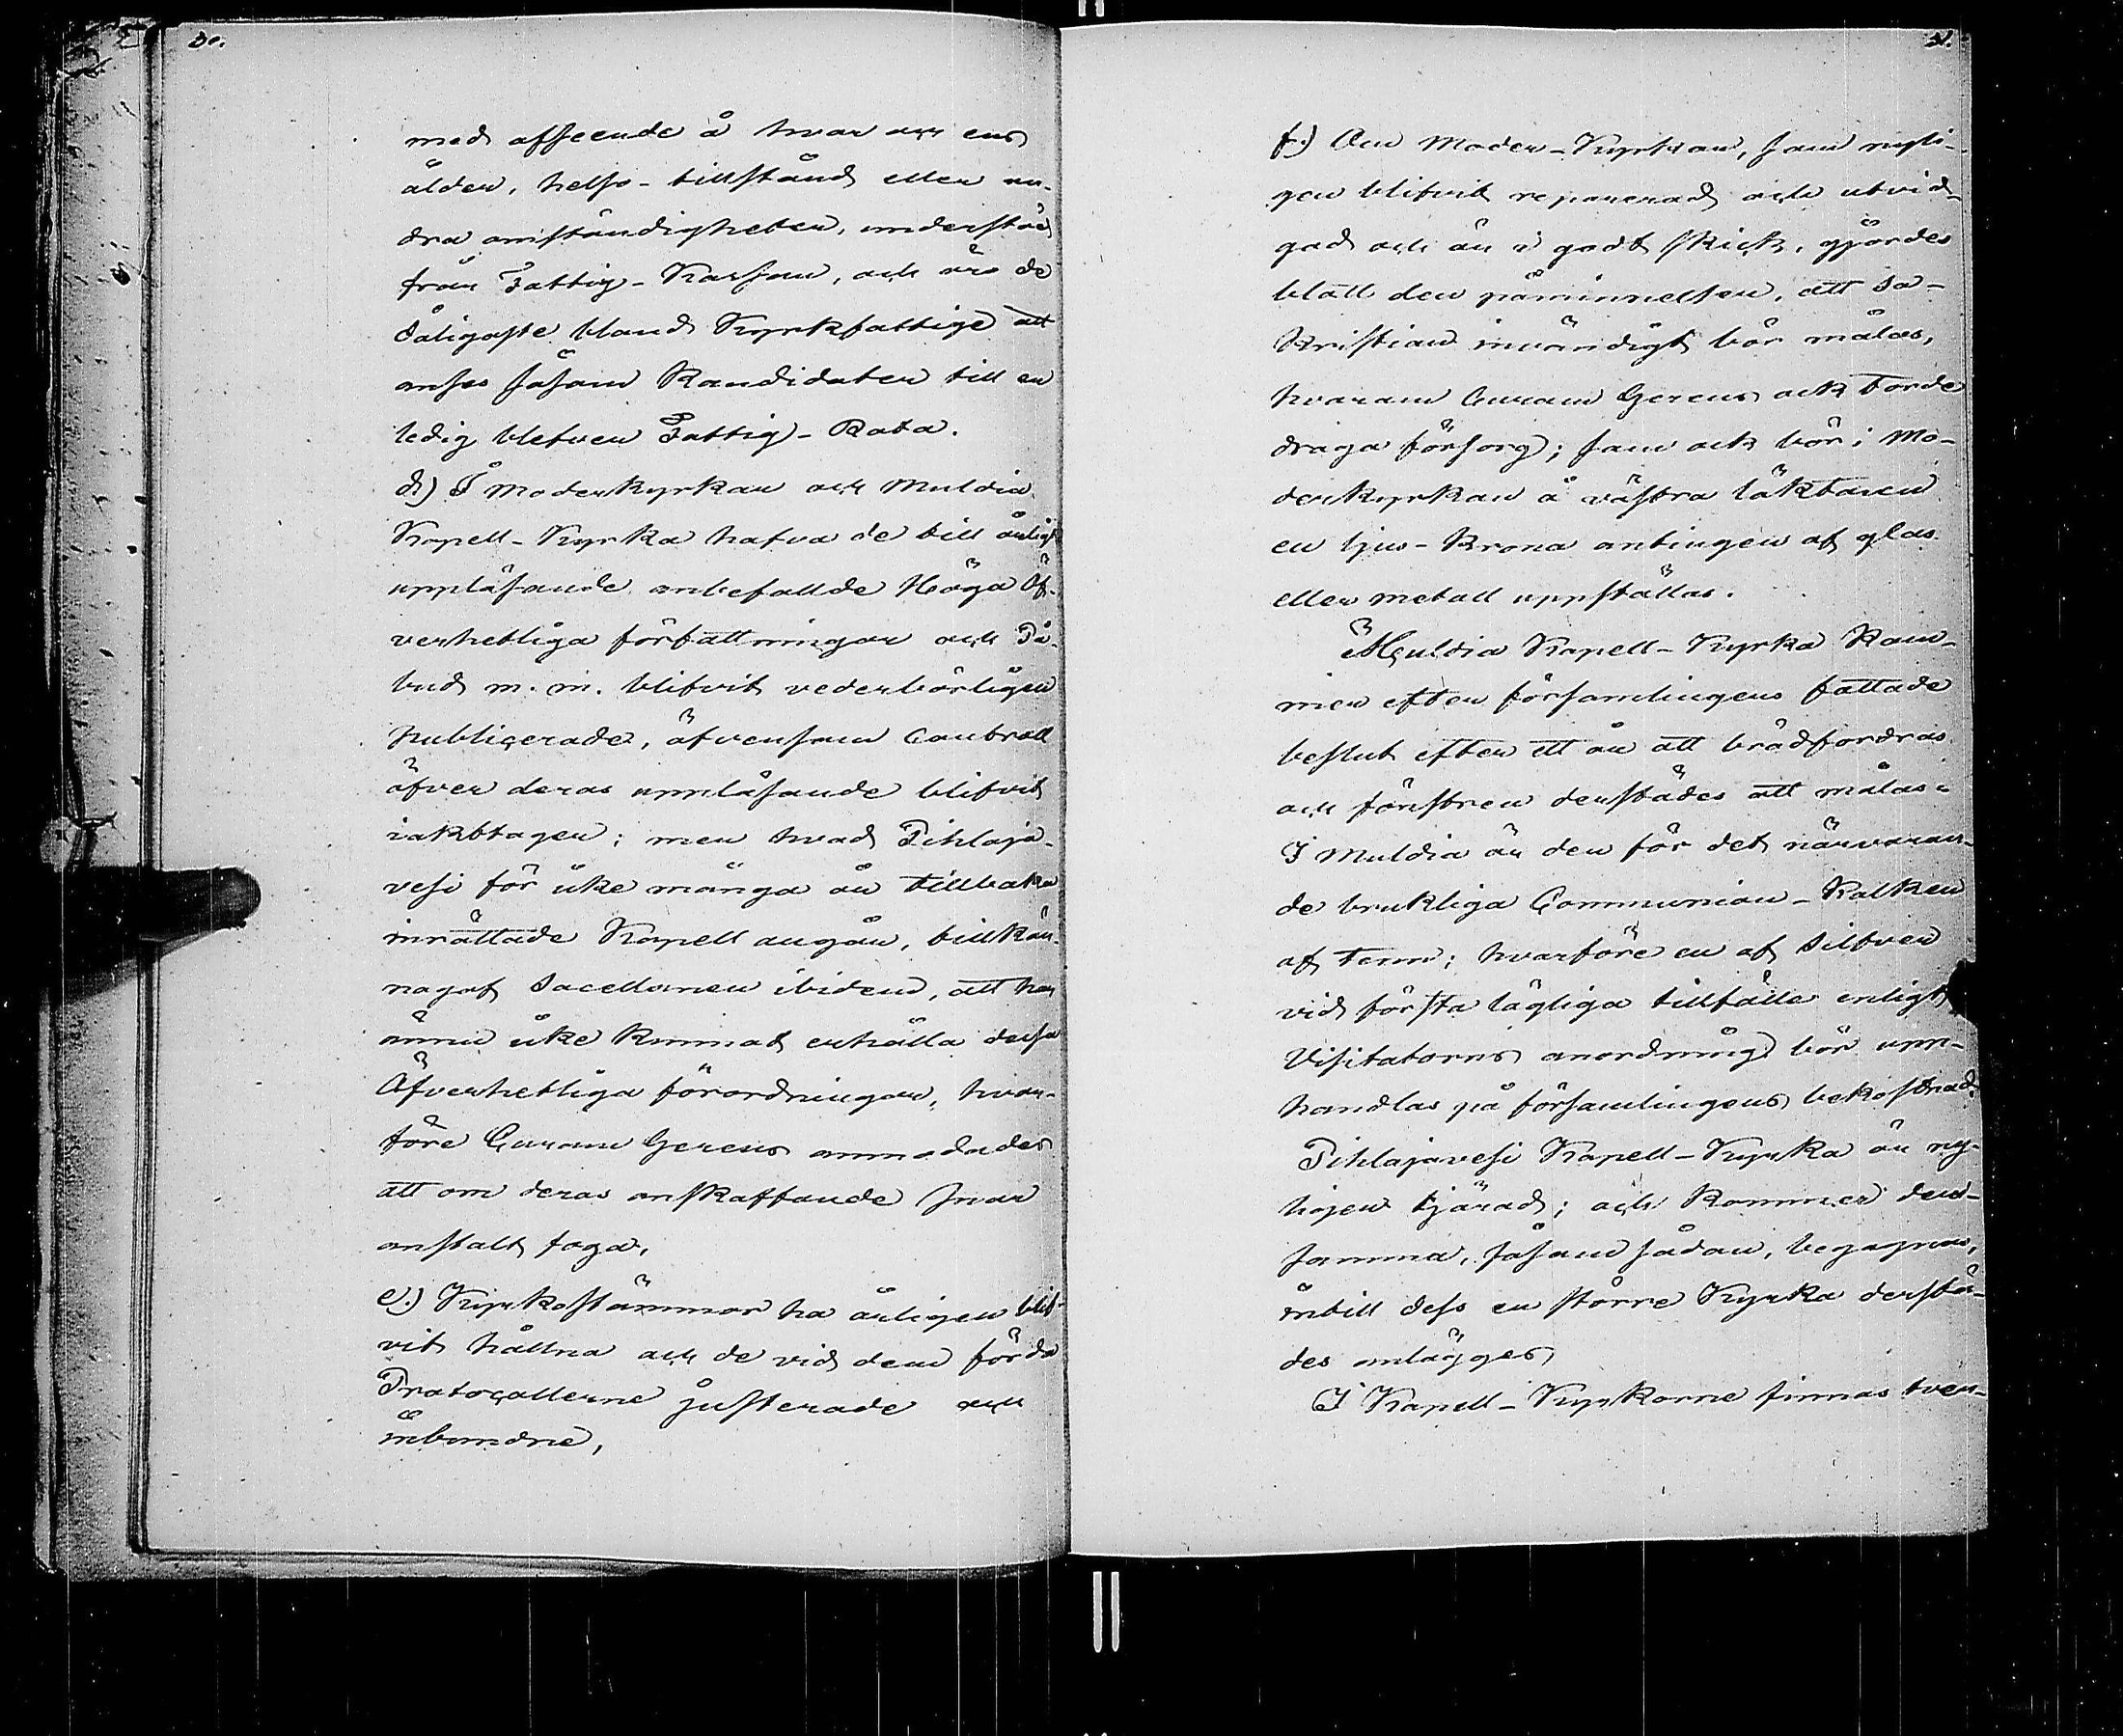 30.
med afseende å hvar och ens
ålder, helso-tillstånd eller an-
dra omständigheter, understöd
från Fattig-Kassan, och äro de
dåligaste bland Kyrkfattige att
anses såsom Kandidater till en
ledig blefven Fattig-Rota.
d) I Moderkyrkan och Muldia
Kapell-Kyrka hafva de till årligt
uppläsande anbefallde Höga Öf-
verhetliga författningar och På-
bud m. m. blifvit vederbörligen
publicerade, äfvensom Controll
öfver deras uppläsande blifvit
iakttagen; men hvad Pihlaja-
vesi för icke många år tillbaka
inrättade Kapell angår, tillkän-
nagaf Sacellanen ibidem, att han
ännu icke kunnat erhålla dessa
Öfverhetliga förordningar, hvar-
före Curam Gerens anmodades
att om deras anskaffande snar
anstalt foga.
e.) Kyrkostämmor ha årligen blif-
vit hållna och de vid dem förda
Protocollerne justerade och
inbundne.
31.
f.) Om Moder-Kyrkan, som nyli-
gen blifvit reparerad och utvid-
gad och är i godt skick, gjordes
blott den påminnelsen, att Sa-
kristian invändigt bör målas,
hvarom Curam Gerens ock torde
draga försorg; som ock bör i Mo-
derkyrkan å västra läktaren
en ljus-Krona antingen af glas
eller metall uppställas.
I Muldia Kapell-Kyrka kom-
mer efter församlingens fattade
beslut efter ett år att brädfordras
och fönstren derstädes att målas.
I Muldia är den för det närvaran-
de brukliga Communion-Kalken
af tenn; hvarföre en af silfver
vid första lägliga tillfälle enligt
Visitatorns anordning bör upp-
handlas på församlingens bekostnad.
Pihlajavesi Kapell-Kyrka är ny-
ligen tjärad; och kommer den-
samma, såsom sådan, begagnas,
intill dess en större Kyrka derstä-
des anlägges.
I Kapell-Kyrkorne finnas tven-